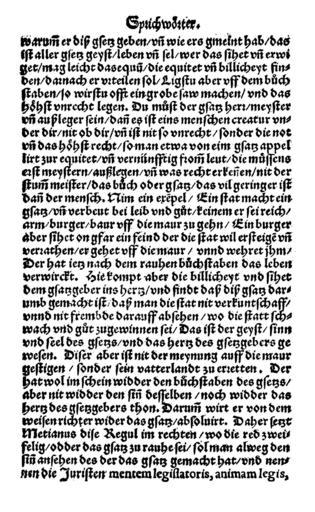 Sprichwörter.
warumb er diß gsetz geben/vñ wie ers gmeint hab/das
ist aller gsetz geyst/leben vñ sel/wer das sihet vñ erwi
get/mag leicht das equū/die equitet vñ billicheyt fin-
den/darnach er vrteilen sol/Ligstu aber vff dem bůch
staben/so wirstu offt ein grobe saw machen/vnd das
höhst vnrecht legen. Du můst der gsatz herr/meyster
vñ außleger sein/dañ es ist eins menschen creatur vn-
der dir/nit ob dir/vñ ist nit so vnrecht/sonder die not
vñ das höhst recht/so man etwa von eim gsatz appel
lirt zur equitet/vñ vernünfftig from̃ leut/die müssens
erst meystern/außlegen/vñ was recht erkeñen/nit der
stum̃ meister/das bůch oder gsatz/das vil geringer ist
dañ der mensch. Nim ein exēpel/Ein stat macht ein
gsatz/vñ verbeut bei leib vnd gůt/keiner er sei reich/
arm/burger/baur vff die maur zu gehn/Ein burger
aber sihet on gfar ein feind der die stat wil ersteigē vñ
verrathen/er gehet vff die maur/vnnd wehret jhm/
Der hat jetz nach dem rauhen bůchstaben das leben
verwirckt. Hie kompt aber die billicheyt vnd sihet
dem gsatzgeber ins hertz/vnd findt daß diß gsatz dar-
umb gemacht ist/daß man die stat nit verkuntschaff/
vnnd nit frembde darauff absehen/wo die statt sch-
wach vnd gůt zugewinnen sei/Das ist der geyst/sinn
vnd seel des gsetzs/vnd das hertz des gsetzgebers ge
wesen. Diser aber ist nit der meynung auff die maur
gestigen/sonder sein vatterlandt zu erretten. Der
hat wol im schein widder den bůchstaben des gsetzs/
aber nit widder den siñ desselben/noch widder das
hertz des gsetzgebers thon. Darum̃ wirt er von dem
weisen richter wider das gsatz/absoluirt. Daher setzt
Metianus dise Regul im rechten/wo die red zwei-
felig/odder das gsatz zu rauhe sei/sol man alweg den
siñ ansehen des der das gsatz gemacht hat/vnd nen-
nen die Juristen mentem legislatoris, animam legis,